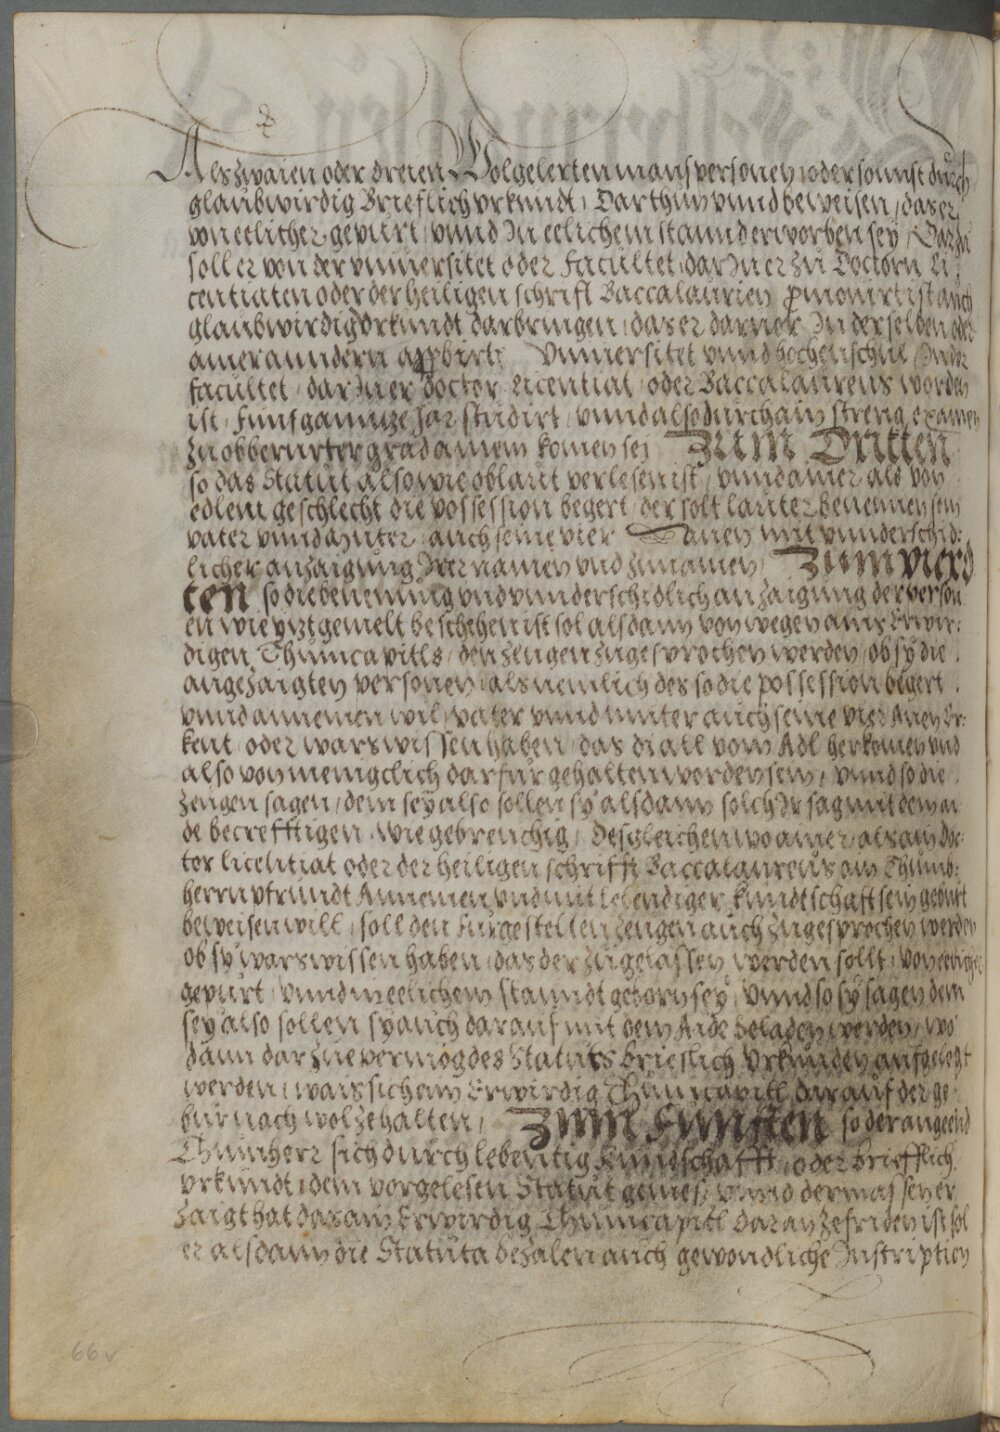 Als zwaien oder dreien Wolgelerten mans personen, oder sonnst durch
glaubwirdig Brieflich vrkundt, Darthun vnnd beweisen, das er
von eelicher gepurt, vnnd In eelichem stannd erworben sey, Darzu
soll er von der vniuersitet oder Facultet, dar Jn er zu Doctorn Li,
centiaten oder der heiligen schrifft Baccalaurien promouirt ist auch
glaubwirdig Vrkundt darbringen, das er daruor In derselben oder
ainer anndern approbirt Vniuersitet vnnd hochenschul, In der
facultet, dar Jn er doctor, licentiat, oder Baccalaureus worden
ist, Funf gannze Jar studirt, vnnd also durch ain streng examen
zu obberurter grad ainem komen sej Zum Dritten
so das Statut also wie oblaut verlesen ist, vnnd ainer als von
edlem geschlecht die possession begert, der solt lauter benennen sein
vater vnnd muter, auch seine vier Anen mit vnnderschid:
licher anzaigung Irer namen vnd zunamen, Zum vierd
ten so die benennung vnd vnnderschidlich anzaigung der person
en wie yzt gemelt beschehen ist sol alsdann von wegen ains Erwir:
digen Thumcapitls, den zeugen zugesprochen werden, ob sy die
angezaigten personen, als nemlich des so die possession begert
vnnd annemen wil, vater vnnd muter auch seine vier Anen Er:
kent, oder wars wissen haben, das di all vom Adl herkomen vnd
also von menigclich darfur gehalten worden sein, vnnd so die
zeugen sagen, dem sey also sollen sy alsdann solch Ir sag mit dem ai
de becrefftigen, wie gebreuchig, desgleichen wo ainer, als ain doc
tor licentiat oder der heiligen schrifft Baccalaureus ain Thumb:
herrn pfrundt Annemen vnd mit lebendiger kundtschaft sein geburt
beweisen will, soll den furgestellten zeugen auch zugesprochen werden
ob sy wars wissen haben, das der zugelassen werden sollt, von eelicher
gepurt, vnnd in eelichem stanndt geborn sey, Vnnd so sy sagen dem
sey also sollen sy auch darauf mit dem Aide beladen werden, wo
dann darzue vermög des Statuts brieflich Vrkunden aufgelegt
werden, wais sich ain Erwirdig Thumcapitl darauf der ge
bür nach wol zehalten, Zum Funften so der angeend
Thumherr sich durch lebentig kundschafft, oder briefflich
vrkundt, dem vorgelesen Statut gemes, vnnd dermassen er
zaigt hat das ain Erwirdig Thumcapitl daran zefriden ist sol
er alsdann die Statuta bezalen auch gewondliche Instription
66v